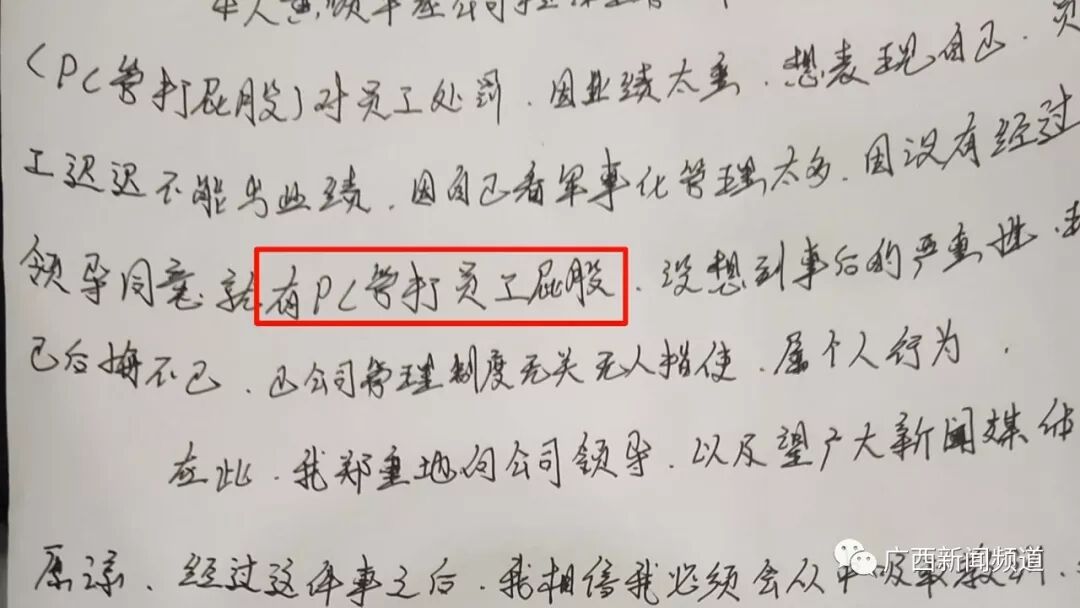 本人黄
(PC管打屁股)对员工处罚.因业绩太重.想表现自己.员
工迟迟不能出业绩.因自己看军事化管理太多.因没有经过
领导同意.就有PC管打员工屁股.没想到事后的严重性.
已后悔不已.已公司管理制度无关无人指使.属个人行为.
在此.我郑重地向公司领导.以及望广大新闻媒体
原谅.经过这件事之后.我相信我必须会从中吸取教训.
广西新闻频道